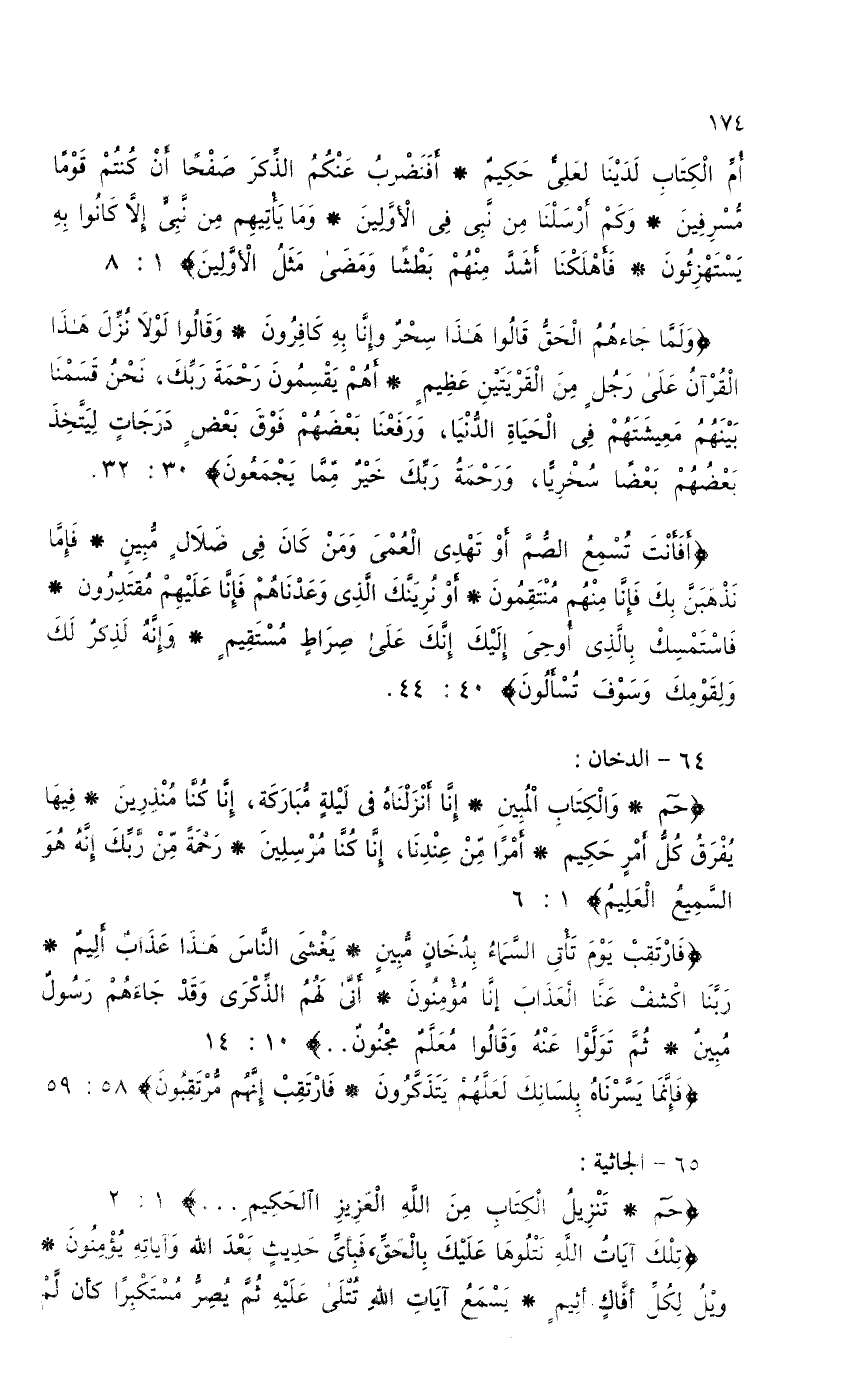 ١٧٤
أُمِّ الْكِتَابِ لَدَيْنَا لَعَلِىٌّ حَكِيمٌ * أَفَنَضْرِبُ عَنْكُمُ الذِّكرَ صَفْحًا أَنْ كُنتُمْ قَوْمًا
مُّسْرِفِينَ * وَكَمْ أَرْسَلْنَا مِن نَّبِى فِى الْأَوَّلِينَ * وَمَا يَأْتِيهِم مِن نَّبِىٍّ إِلَّا كَانُوا بِهِ
يَسْتَهْزِئُونَ * فَأَهْلَكْنَا أَشَدَّ مِنْهُمْ بَطْشًا وَمَضَىٰ مَثَلُ الْأَوَّلِينَ﴾ ١ : ٨
﴿وَلَمَّا جَاءهُمُ الْحَقُّ قَالُوا هَـٰذَا سِحْرٌ وإِنَّا بِهِ كَافِرُونَ * وَقَالُوا لَوْلَا نُزِّلَ هَـٰذَا
الْقُرْآنُ عَلَىٰ رَجُلٍ مِنَ الْقَرْيَتَيْنِ عَظِيمٍ * أَهُمْ يَقْسِمُونَ رَحْمَةَ رَبِّكَ، نَحْنُ قَسَمْنَا
بَيْنَهُمُ مَعِيشَتَهُمْ فِى الْحَيَاةِ الدُّنْيَا، وَرَفَعْنَا بَعْضَهُمْ فَوْقَ بَعْضٍ دَرَجَاتٍ لِيَتَّخِذَ
بَعْضُهُمْ بَعْضًا سُخْرِيًّا، وَرَحْمَةُ رَبِّكَ خَيْرٌ مِّمَّا يَجْمَعُونَ﴾ ٣٠ : ٣٢.
﴿أَفَأَنْتَ تُسْمِعُ الصُّمَّ أَوْ تَهْدِى الْعُمْىَ وَمَنْ كَانَ فِى ضَلَالٍ مُّبِينٍ * فَإِمَّا
نَذْهَبَنَّ بِكَ فَإِنَّا مِنْهُم مُنْتَقِمُونَ * أَوْ نُرِيَنَّكَ الَّذِى وَعَدْنَاهُمْ فَإِنَّا عَلَيْهِمْ مُقتَدِرُون *
فَاسْتَمْسِكْ بِالَّذِى أُوحِىَ إِلَيْكَ إِنَّكَ عَلَىٰ صِرَاطٍ مُسْتَقِيمٍ * وَإِنَّهُ لَذِكرٌ لَكَ
وَلِقَوْمِكَ وَسَوْفَ تُسْأَلُونَ﴾ ٤٠ : ٤٤.
٦٤ - الدخان :
﴿حَمٓ * وَالْكِتَابِ الْمُبِينِ * إِنَّا أَنْزَلْنَاهُ فى لَيْلةٍ مُّبَارَكَة، إِنَّا كُنَّا مُنْذِرِينَ * فِيهَا
يُفْرَقُ كُلُّ أَمْرٍ حَكِيم * أَمْرًا مِّنْ عِنْدِنَا، إِنَّا كُنَّا مُرْسِلِينَ * رَحْمَةً مِّنْ رَّبِّكَ إِنَّهُ هُوَ
السَّمِيعُ الْعَلِيمُ﴾ ١ : ٦
﴿فَارْتَقِبْ يَوْمَ تَأْتِى السَّمَاءُ بِدُخَانٍ مُّبِينٍ * يَغْشَى النَّاسَ هَـٰذَا عَذَابٌ أَلِيمٌ *
رَبَّنَا اكْشِفْ عَنَّا الْعَذَابَ إِنَّا مُؤْمِنُونَ * أَنَّىٰ لَهُمُ الذِّكْرَى وَقَدْ جَاءَهُمْ رَسُولٌ
مُبِينٌ * ثُمَّ تَوَلَّوْا عَنْهُ وَقَالُوا مُعَلَّمٌ مجْنُونٌ..﴾ ١٠ : ١٤
﴿فَإِنَّمَا يَسَّرْنَاهُ بِلسَانِكَ لَعَلَّهُمْ يَتَذَكَّرُونَ * فَارْتَقِبْ إِنَّهُم مُّرْتَقِبُونَ﴾ ٥٨ : ٥٩
٦٥ - الجاثية :
﴿حَمٓ * تَنْزِيلُ الْكِتَابِ مِنَ اللَّهِ الْعَزِيزِ االحَكِيمِ...﴾ ١ : ٢
﴿تِلْكَ آيَاتُ اللَّهِ نَتْلُوهَا عَلَيْكَ بِالْحَقِّ، فَبِأَىِّ حَدِيثٍ بَعْدَ الله وَآياتِهِ يُؤْمِنُونَ *
ويْلٌ لِكُلِّ أفَّاكٍ أثِيمٍ * يَسْمَعُ آيَاتِ اللهِ تُتْلَىٰ عَلَيْهِ ثُمَّ يُصِرُّ مُسْتَكْبِرًا كأن لَّمْ